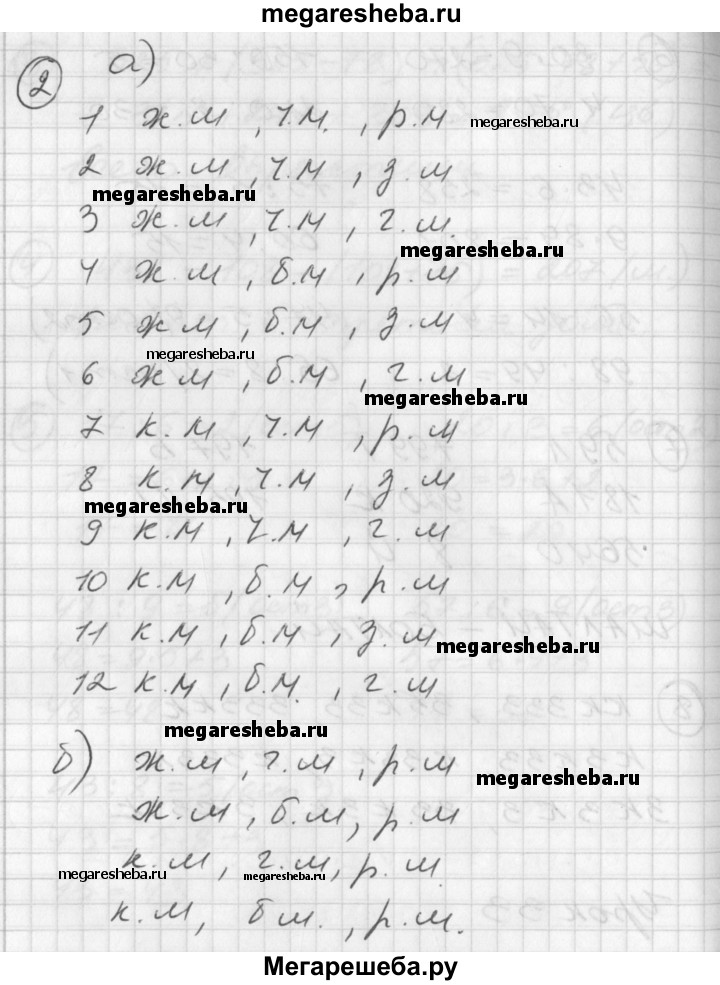 megaresheba.ru
2 а)
1 ж.м , ч.м. , р.м megaresheba.ru
2 ж.м , ч.м , з.м
megaresheba.ru
3 ж.м , ч.м , г.м.
megaresheba.ru
4 ж.м , б.м , р.м
5 ж.м , б.м , з.м
megaresheba.ru
6 ж.м , б.м , г.м
megaresheba.ru
7 к.м , ч.м , р.м
8 к.м , ч.м , з.м
megaresheba.ru
9 к.м , ч.м , г.м
10 к.м , б.м , р.м
11 к.м , б.м , з.м
megaresheba.ru
12 к.м , б.м. , г.м
megaresheba.ru
б) ж.м , г.м , р.м
megaresheba.ru
ж.м , б.м , р.м
к.м , г.м , р.м
megaresheba.ru megaresheba.ru
к.м , б м. , р.м.
Мегарешеба.ру